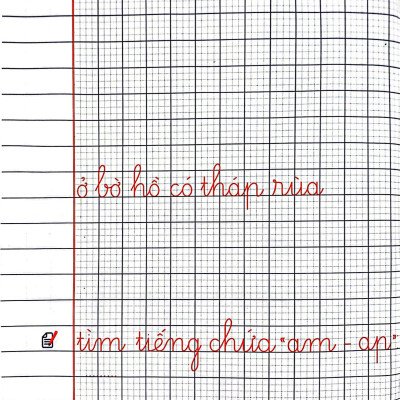 ở bờ hồ có tháp rùa
tìm tiếng chứa "am - ap"